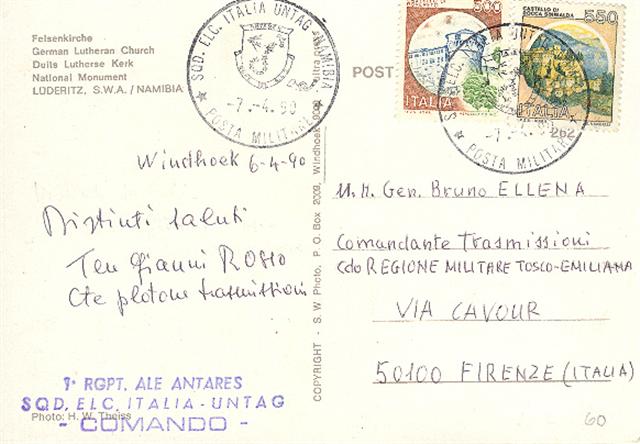 Felsenkirche
German Lutheran Church
Duits Lutherse Kerk
National Monument
LÜDERITZ, S.W.A. / NAMIBIA
SQD. ELC. ITALIA UNTAG NAMIBIA
-7.-4.90
POSTA MILITARE
POST
500
ITALIA
CASTELLO DI
ROCCA SINIBALDA
550
ITALIA
-7.-4.90
POSTA MILITARE
262
Windhoek 6-4-90
Distinti saluti
Ten Gianni ROSSO
Cte plotone trasmissioni
1° RGPT. ALE ANTARES
SQD. ELC. ITALIA - UNTAG
- COMANDO -
Photo: H. W. Theiss
COPYRIGHT - S. W. Photo, P. O. Box 2009, Windhoek 9000
Gen. Bruno ELLENA
Comandante Trasmissioni
Cdo REGIONE MILITARE TOSCO-EMILIANA
VIA CAVOUR
50100 FIRENZE (ITALIA)
60